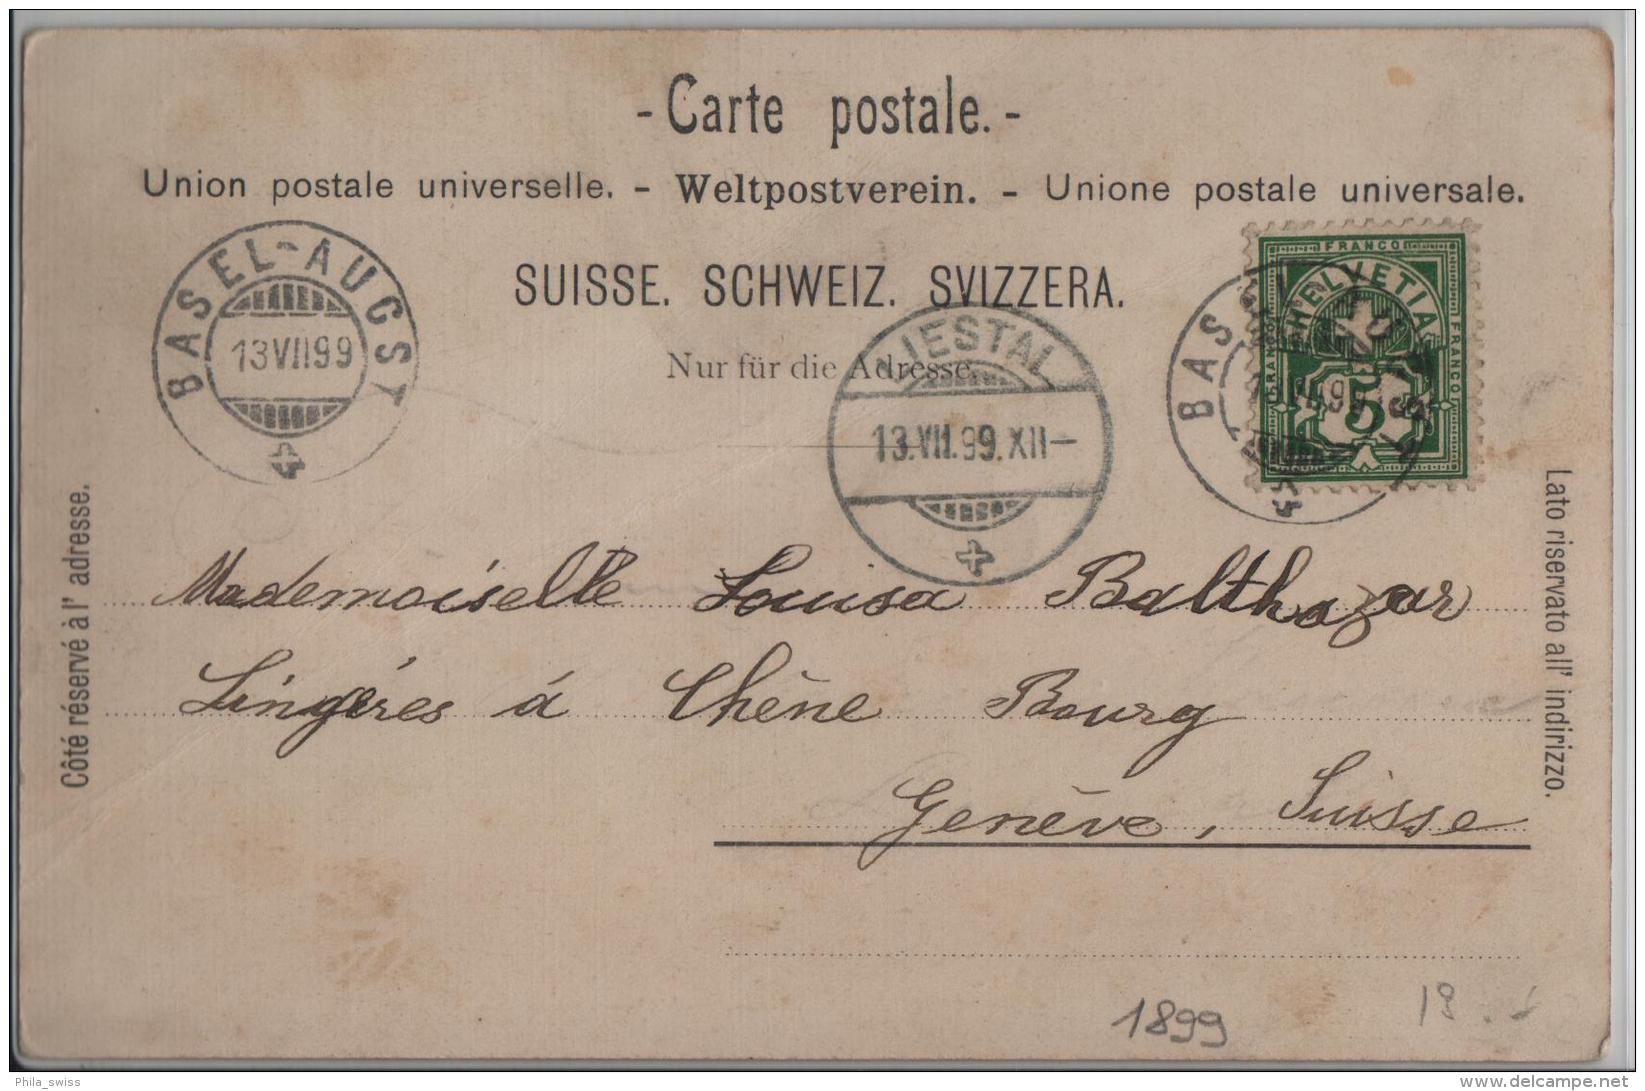 - Carte postale. -
Union postale universelle. - Weltpostverein. - Unione postale universale.
SUISSE. SCHWEIZ. SVIZZERA.
Nur für die Adresse.
BASEL-AUGST
13 VII 99
LIESTAL
13.VII.99.XII-
FRANCO
HELVETIA
FRANCO
FRANCO
5
BAS
Côté réservé à l' adresse.
Lato riservato all' indirizzo.
Mademoiselle Louisa Balthazar
Lingéres á Chêne Bourg
Genève, Suisse
1899
Phila_swiss
delcampe.net